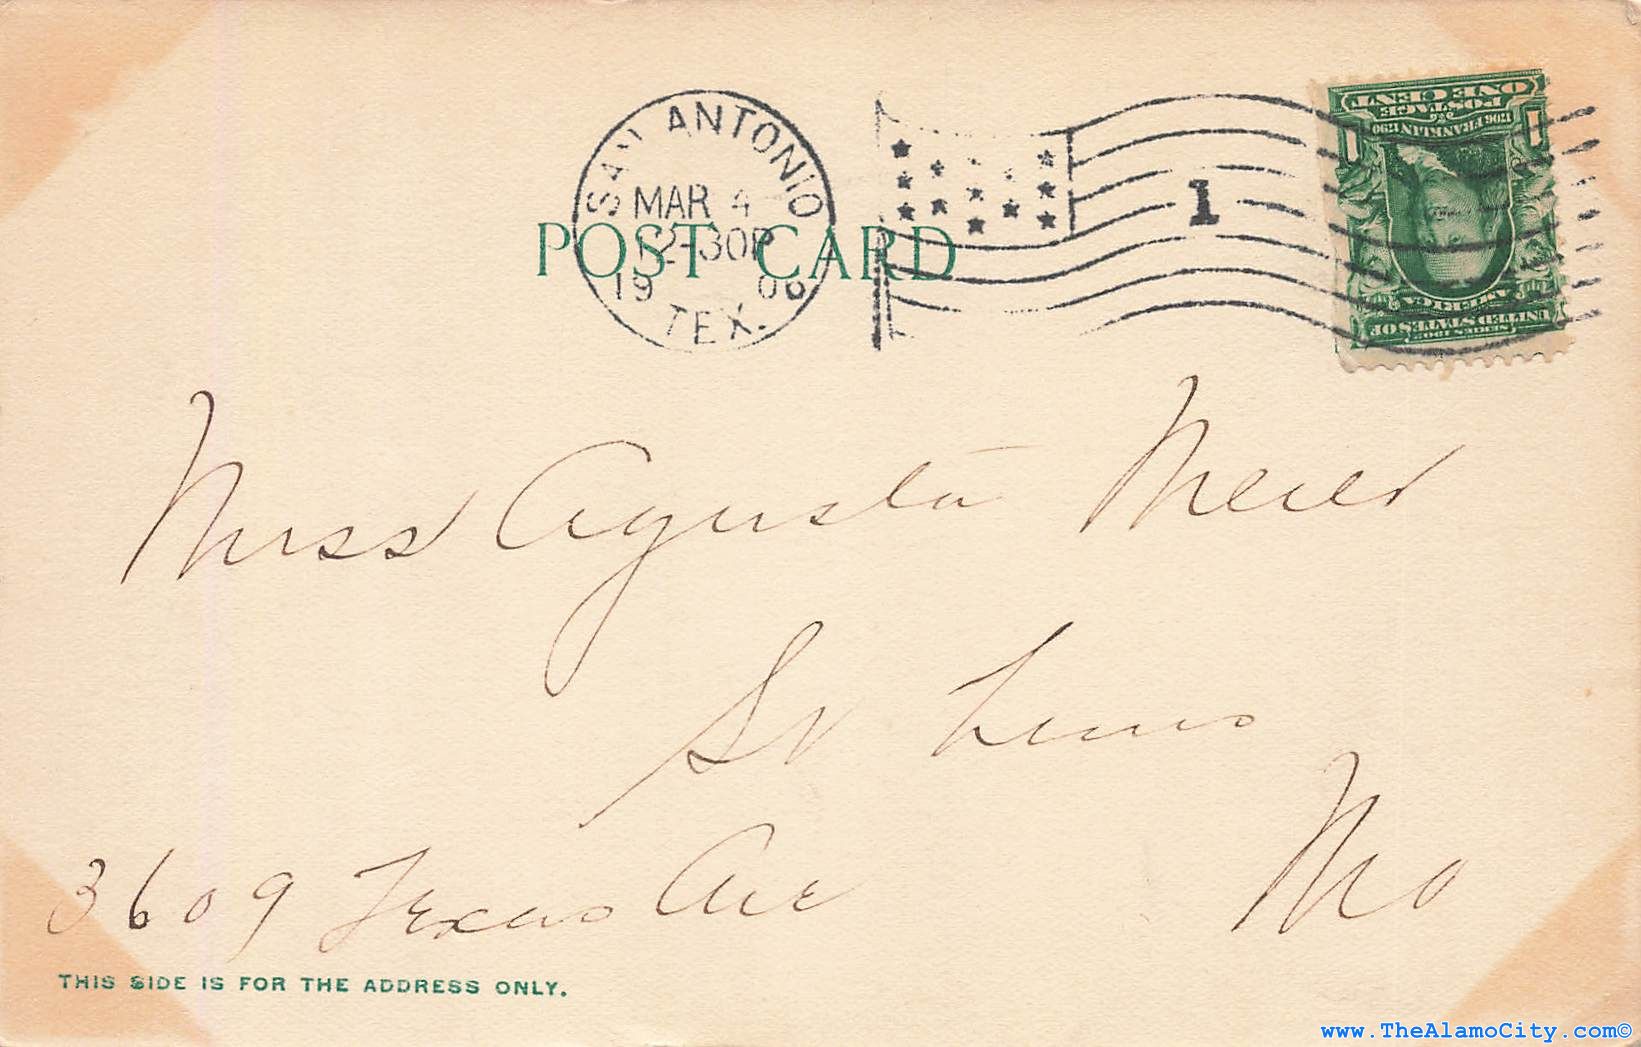 SAN ANTONIO
MAR 4
12-30P
19 06
TEX.
1
POST CARD
ONE CENT
POSTAGE
1706 FRANKLIN 1790
SERIES 1902
UNITED STATES OF
AMERICA
Miss Agusta Meier
St Louis
Mo
3609 Texas Ave
THIS SIDE IS FOR THE ADDRESS ONLY.
www.TheAlamoCity.com©